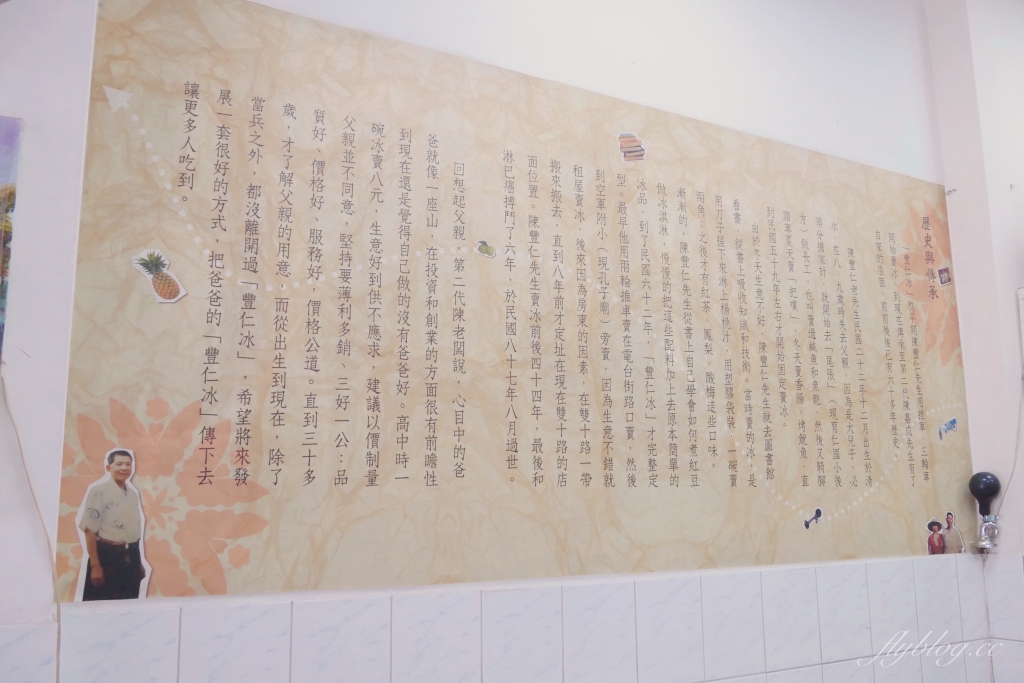 歷史與傳承
到民國五十九年左右才開始固定賣冰。
由於冬天生意不好，陳豐仁先生就去圖書館
看書，從書上吸收知識和技術。當時賣的冰，是
用刀子搓下來淋上楊桃汁，用塑膠袋裝，一碗賣
兩角，之後才有紅茶、鳳梨、酸梅這些口味。
漸漸的，陳豐仁先生從書上自己學會如何煮紅豆
做冰淇淋，慢慢的把這些配料加上去原本簡單的
冰品，到了民國六十二年，「豐仁冰」才完整定
型。最早他用兩輪推車賣在電台街路口賣，然後
到空軍附小（現孔子廟）旁賣，因為生意不錯就
租屋賣冰，後來因為房東的因素，在雙十路一帶
搬來搬去，直到八年前才定址在現在雙十路的店
面位置。陳豐仁先生賣冰前後四十四年，最後和
淋巴癌搏鬥了六年，於民國八十七年八月過世。
回想起父親，第二代陳老闆說，心目中的爸
爸就像一座山，在投資和創業的方面很有前瞻性
到現在還是覺得自己做的沒有爸爸好。高中時一
碗冰賣八元，生意好到供不應求，建議以價制量
父親並不同意，堅持要薄利多銷、三好一公：品
質好、價格好、服務好，價格公道。直到三十多
歲，才了解父親的用意，而從出生到現在，除了
當兵之外，都沒離開過「豐仁冰」，希望將來發
展一套很好的方式，把爸爸的「豐仁冰」傳下去
讓更多人吃到。
flyblog.cc